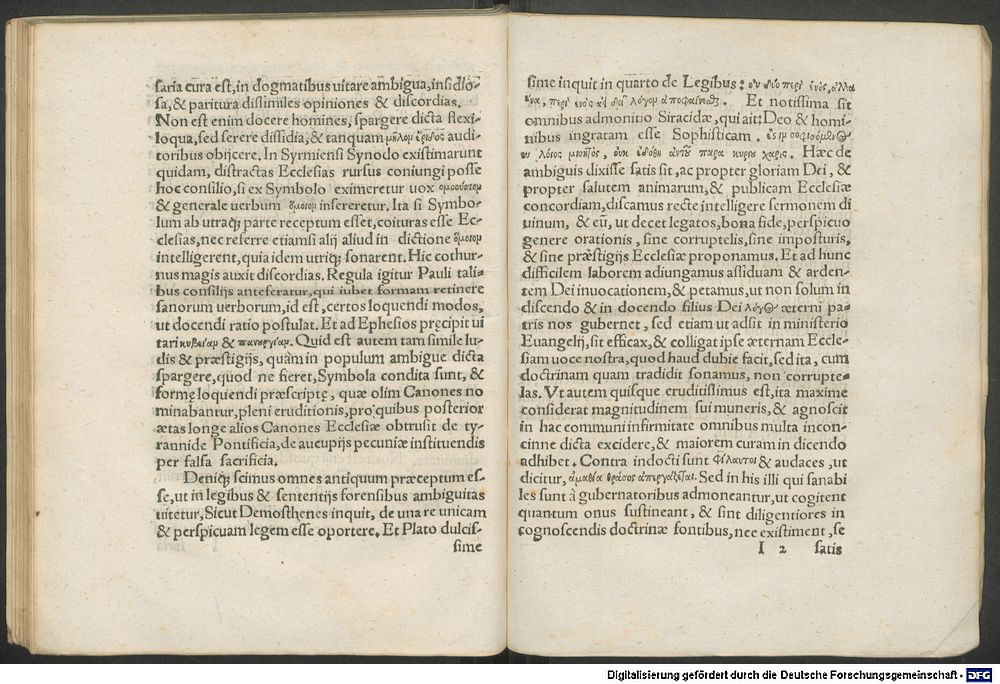 saria cura est, in dogmatibus uitare ambigua, insidio-
sa, & paritura dissimiles opiniones & discordias.
Non est enim docere homines, spargere dicta flexi-
loqua, sed serere dissidia, & tanquam μῆλον ἔριδος audi-
toribus obijcere. In Syrmiensi Synodo existimarunt
quidam, distractas Ecclesias rursus coniungi posse
hoc consilio, si ex Symbolo eximeretur uox ὁμοούσιον
& generale uerbum ὅμοιον insereretur. Ita si Symbo-
lum ab utraq; parte receptum esset, coituras esse Ec-
clesias, nec referre etiamsi alij aliud in dictione ὅμοιον
intelligerent, quia idem utriq; sonarent. Hic cothur-
nus magis auxit discordias. Regula igitur Pauli tali-
bus consilijs anteferatur, qui iubet formam retinere
sanorum uerborum, id est, certos loquendi modos,
ut docendi ratio postulat. Et ad Ephesios pręcipit ui
tari κυβείαν & πανουργίαν. Quid est autem tam simile lu-
dis & præstigijs, quàm in populum ambigue dicta
spargere, quod ne fieret, Symbola condita sunt, &
formę loquendi præscriptę, quæ olim Canones no
minabantur, pleni eruditionis, pro quibus posterior
ætas longe alios Canones Ecclesiæ obtrusit de ty-
rannide Pontificia, de aucupijs pecuniæ instituendis
per falsa sacrificia.
Deniq; scimus omnes antiquum præceptum es-
se, ut in legibus & sententijs forensibus ambiguitas
uitetur, Sicut Demosthenes inquit, de una re unicam
& perspicuam legem esse oportere. Et Plato dulcis-
sime
sime inquit in quarto de Legibus: οὐ δύο περὶ ἑνὸς, ἀλλὰ
ἕνα, περὶ ἑνὸς ἀεὶ δεῖ λόγον ἀποφαίνεσθαι. Et notissima sit
omnibus admonitio Siracidæ, qui ait: Deo & homi-
nibus ingratam esse Sophisticam. ἔστιν σοφιζόμενος
ἐν λόγοις μισητὸς, οὐκ ἐδόθη αὐτῷ παρὰ κυρίου χάρις. Hæc de
ambiguis dixisse satis sit, ac propter gloriam Dei, &
propter salutem animarum, & publicam Ecclesiæ
concordiam, discamus recte intelligere sermonem di
uinum, & eū, ut decet legatos, bona fide, perspicuo
genere orationis, sine corruptelis, sine imposturis,
& sine præstigijs Ecclesiæ proponamus. Et ad hunc
difficilem laborem adiungamus assiduam & arden-
tem Dei inuocationem, & petamus, ut non solum in
discendo & in docendo filius Dei λόγος æterni pa-
tris nos gubernet, sed etiam ut adsit in ministerio
Euangelij, sit efficax, & colligat ipse æternam Eccle-
siam uoce nostra, quod haud dubie facit, sed ita, cum
doctrinam quam tradidit sonamus, non corrupte-
las. Vt autem quisque eruditissimus est, ita maxime
considerat magnitudinem sui muneris, & agnoscit
in hac communi infirmitate omnibus multa incon-
cinne dicta excidere, & maiorem curam in dicendo
adhibet. Contra indocti sunt φίλαυτοι & audaces, ut
dicitur, ἀμαθία θράσος ἀπεργάζεται. Sed in his illi qui sanabi
les sunt à gubernatoribus admoneantur, ut cogitent
quantum onus sustineant, & sint diligentiores in
cognoscendis doctrinæ fontibus, nec existiment, se
I 2 satis
Digitalisierung gefördert durch die Deutsche Forschungsgemeinschaft - DFG